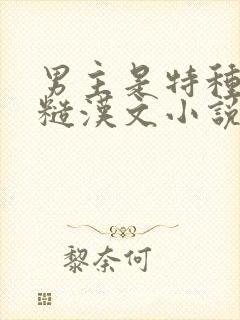 男主是特種
糙漢文小說
黎奈何